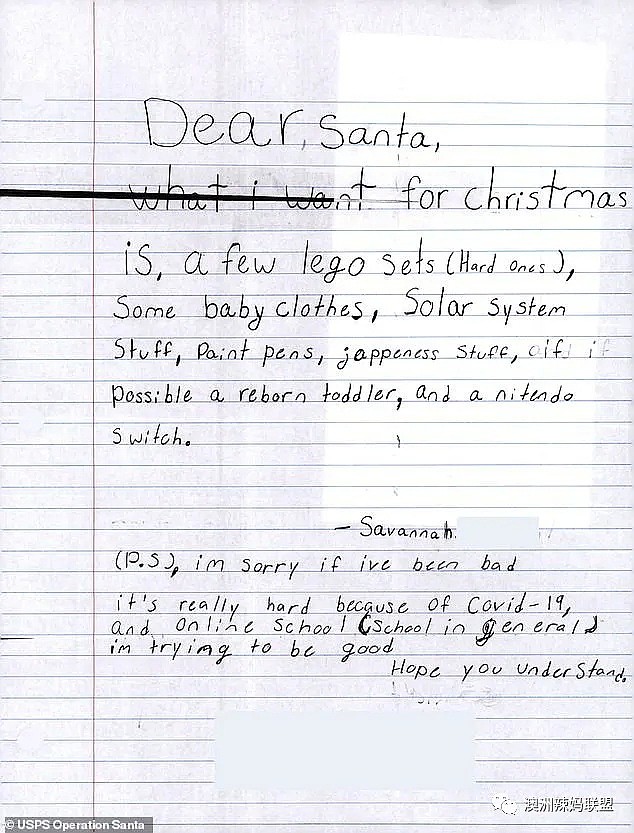 Dear, Santa,
what i want for christmas
is, a few lego sets (Hard ones),
Some baby clothes, Solar system
Stuff, Paint pens, jappeness stuff, if
possible a reborn toddler, and a nitendo
switch.
- Savannah
(P.S), im sorry if ive been bad
it's really hard because of Covid-19,
and online school (School in general)
im trying to be good
Hope you understand.
© USPS Operation Santa
澳洲辣妈联盟